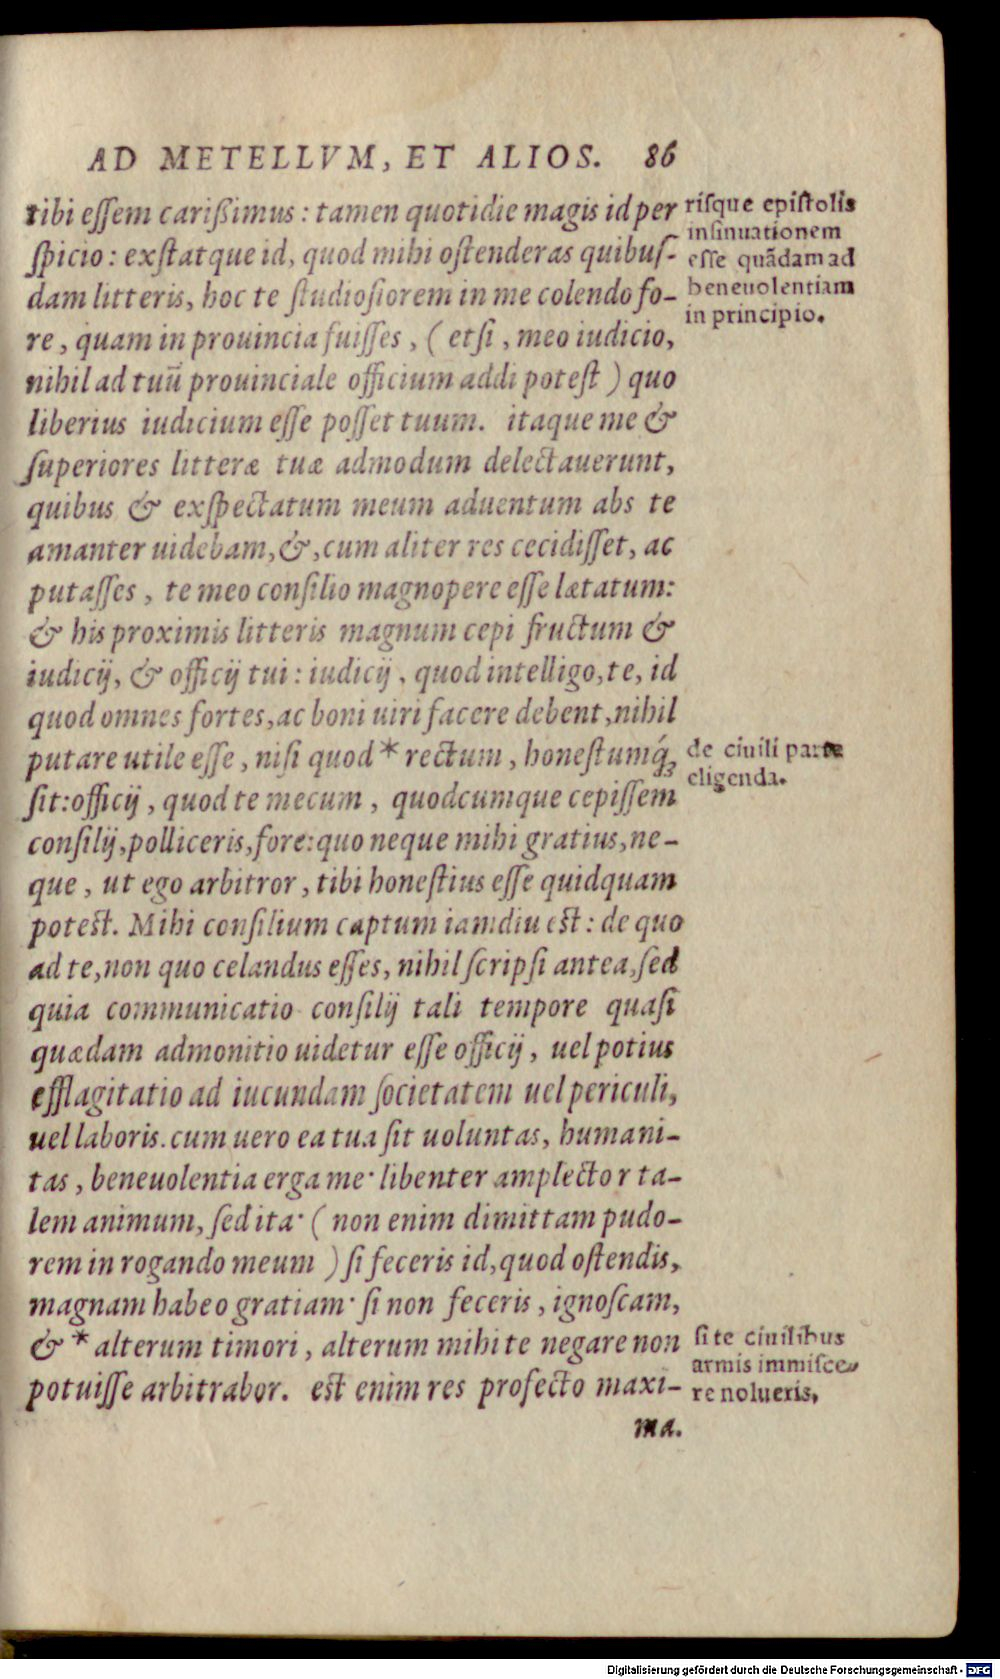 AD METELLVM, ET ALIOS. 86
tibi essem carißimus: tamen quotidie magis id per
spicio: exstatque id, quod mihi ostenderas quibus-
dam litteris, hoc te studiosiorem in me colendo fo-
re, quam in prouincia fuisses, (etsi, meo iudicio,
nihil ad tuũ prouinciale officium addi potest) quo
liberius iudicium esse posset tuum. itaque me &
superiores litteræ tuæ admodum delectauerunt,
quibus & exspectatum meum aduentum abs te
amanter uidebam, &, cum aliter res cecidisset, ac
putasses, te meo consilio magnopere esse lætatum:
& his proximis litteris magnum cepi fructum &
iudicij, & officij tui: iudicij, quod intelligo, te, id
quod omnes fortes, ac boni uiri facere debent, nihil
putare utile esse, nisi quod * rectum, honestumq́;
sit: officij, quod te mecum, quodcumque cepissem
consilij, polliceris, fore: quo neque mihi gratius, ne-
que, ut ego arbitror, tibi honestius esse quidquam
potest. Mihi consilium captum iamdiu est: de quo
ad te, non quo celandus esses, nihil scripsi antea, sed
quia communicatio consilij tali tempore quasi
quædam admonitio uidetur esse officij, uel potius
efflagitatio ad iucundam societatem uel periculi,
uel laboris. cum uero ea tua sit uoluntas, humani-
tas, beneuolentia erga me· libenter amplector ta-
lem animum, sed ita· (non enim dimittam pudo-
rem in rogando meum) si feceris id, quod ostendis,
magnam habeo gratiam· si non feceris, ignoscam,
& * alterum timori, alterum mihi te negare non
potuisse arbitrabor. est enim res profecto maxi-
ma.
risque epistolis
insinuationem
esse quãdam ad
beneuolentiam
in principio.
de ciuili parte
eligenda.
si te ciuilibus
armis immisce-
re nolueris,
Digitalisierung gefördert durch die Deutsche Forschungsgemeinschaft - DFG